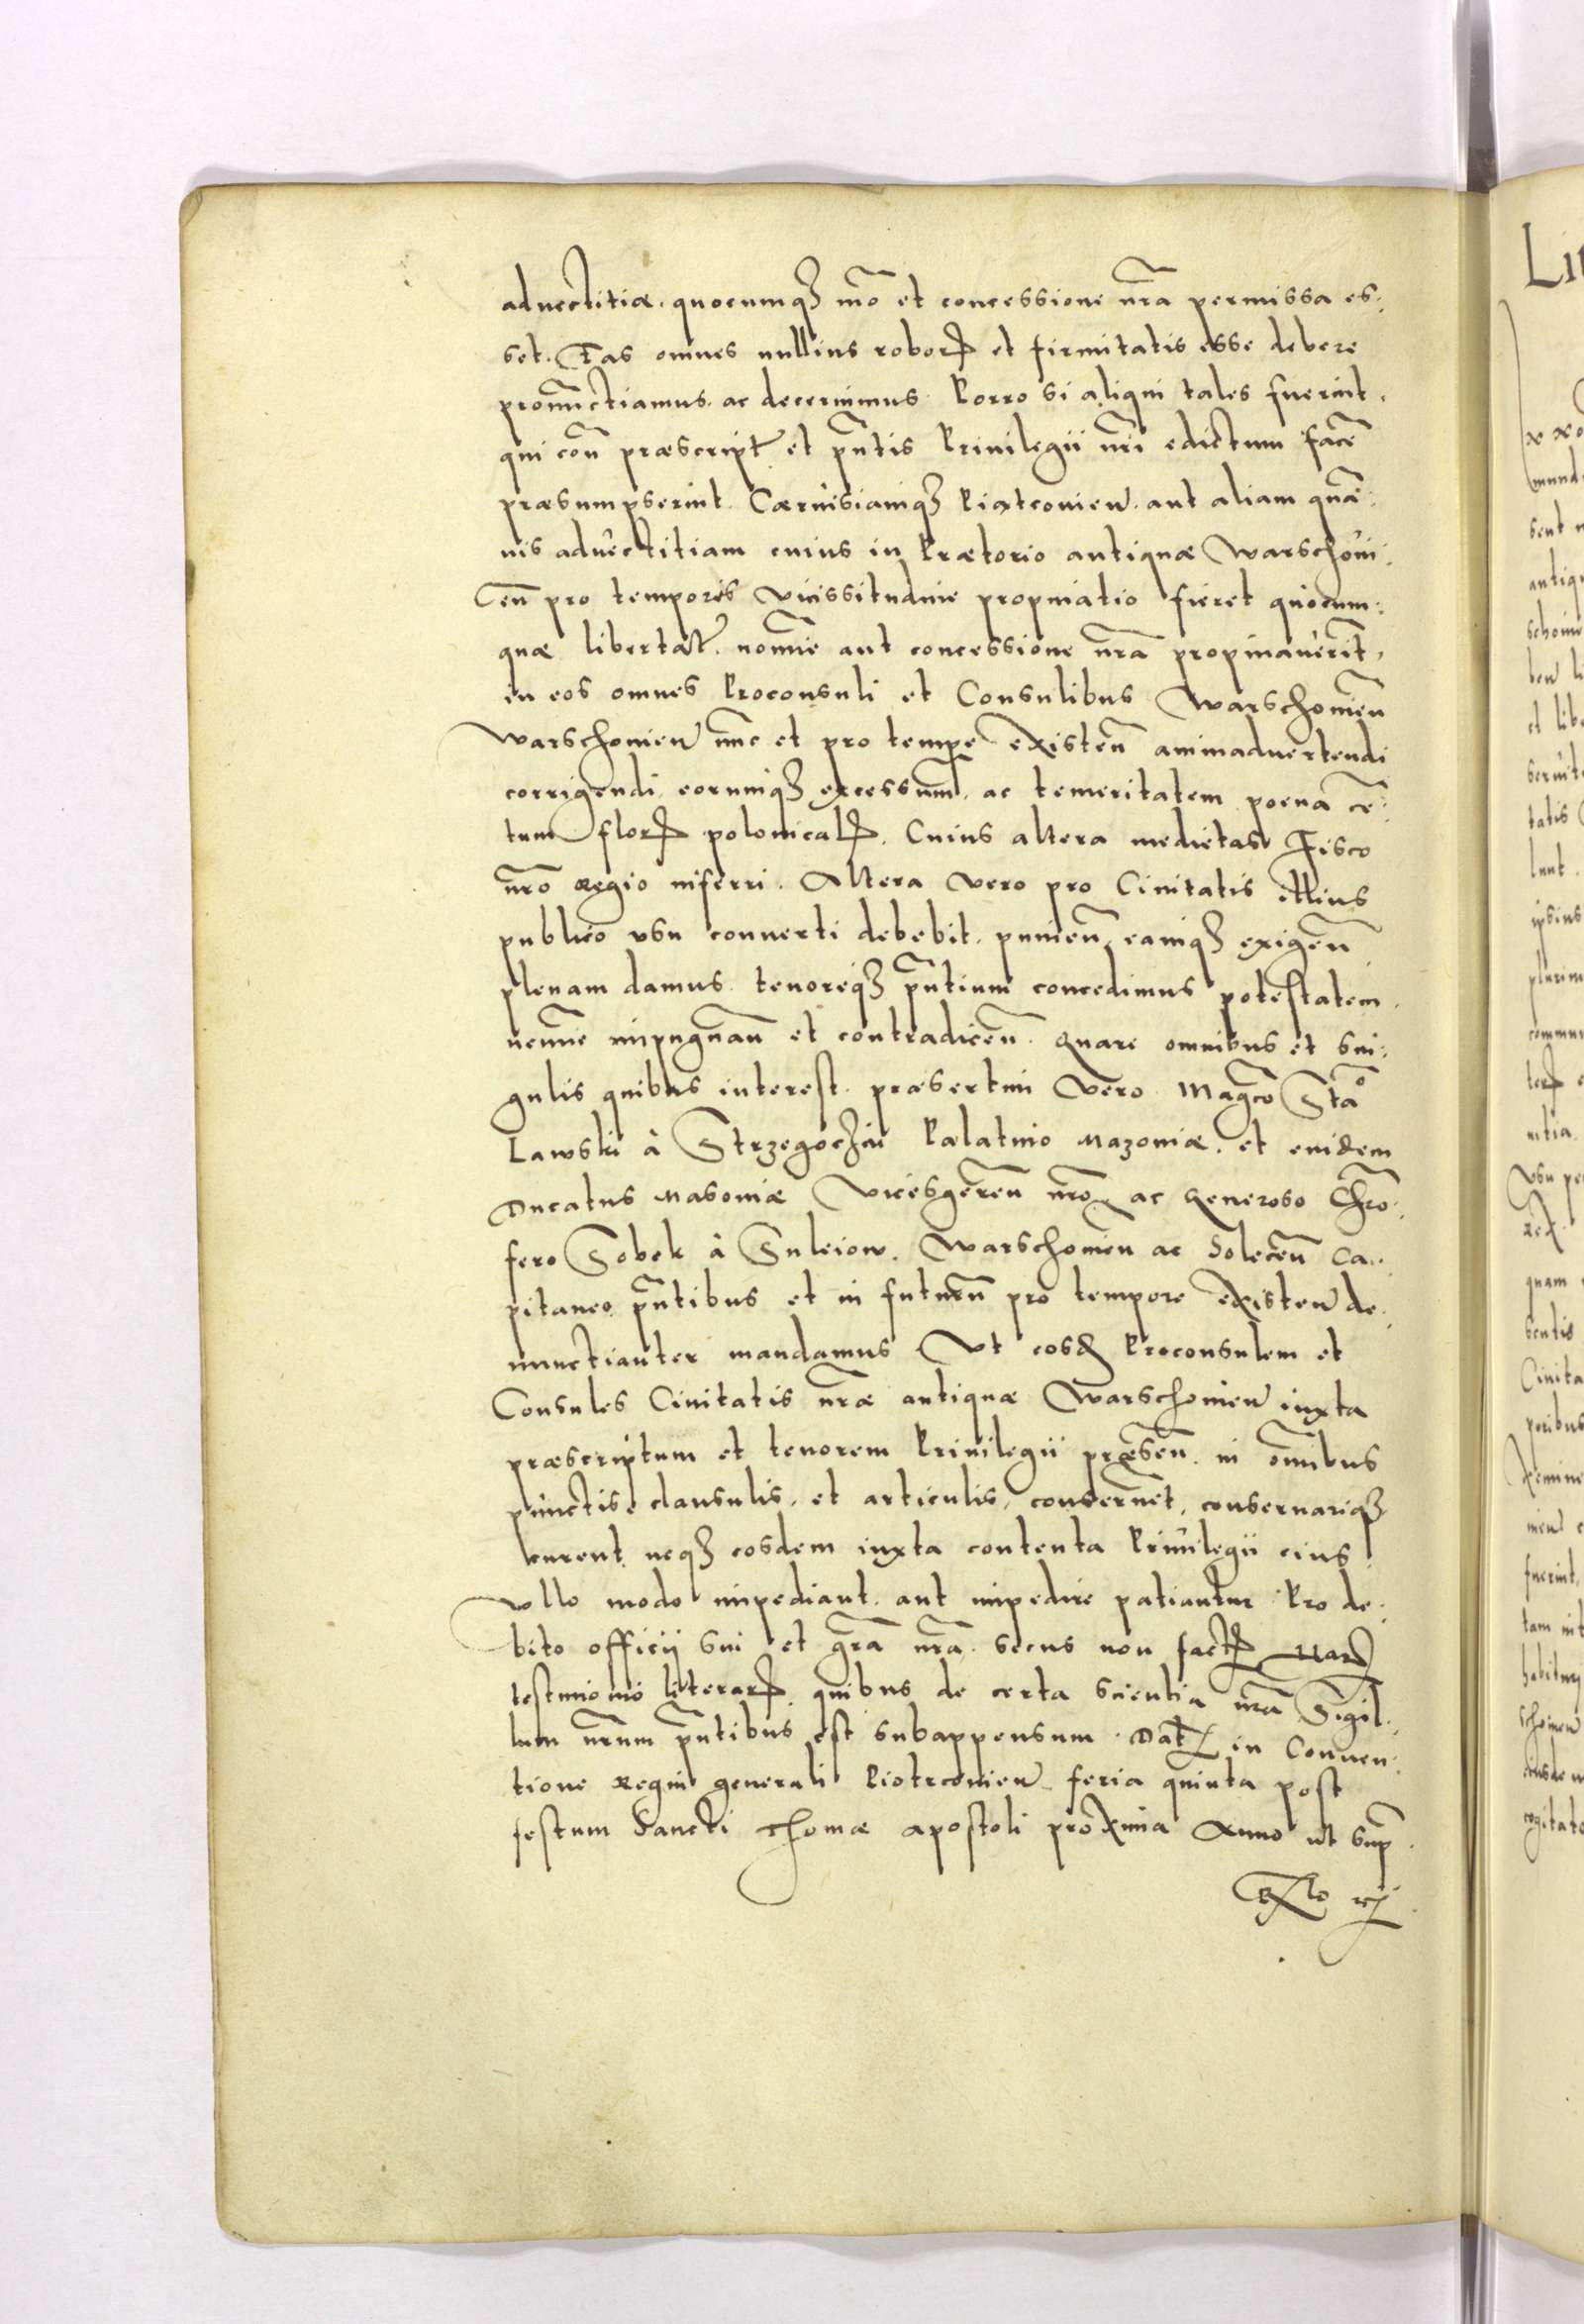 advectitiæ. quocumqꝫ mo͞ et concessione nr͞a permissa es:
set. Eas omnes nullius roborꝭ et firmitatis esse debere
pronu͞nctiamus. ac decernimus. Porro si aliqui tales fuerint.
qui con͞ præscript. et pn͞tis Priuilegii nr͞i edictum face͞
præsumpserint. Cæruisiamqꝫ Piatcouien. aut aliam qua͞:
uis aduectitiam cuius in Prætorio antiquæ Warschoui:
Cen͞ pro temporis vicissitudine propinatio fieret quocum:
quæ libertat. nom͞ie aut concessione nr͞a propinauerit,
in eos omnes Proconsuli et Consulibus Warschouien͞
Warschouien nu͞c et pro tempe existen͞ animaduertendi
corrigendi, eorumqꝫ excessum, ac temeritatem poena ce͞:
tum florꝭ polonicalꝭ. Cuius altera medietas Fisco
nr͞o Regio inferri. Altera vero pro Ciuitatis illius
publico vsu conuerti debebit. punien͞ eamqꝫ exigen͞
plenam damus. tenoreqꝫ pn͞tium concedimus potestatem.
nem͞ie impugnan͞ et contradicen͞. Quare omnibus et sin:
gulis quibus interest. præsertim vero Magco͞ Sta͞o
Lawski à Strzegoczin Palatino Mazouiæ. et eiusdem
Ducatus Masouiæ vicesgeren͞ nr͞o ac Generoso Chr͞o:
fero Sobek à Suleiow. Warschouien͞ ac Solecen͞ Ca:
pitaneo pn͞tibus et in futurn͞ pro tempore existen de:
nunctianter mandamus Vt eosdꝫ Proconsulem et
Consules Ciuitatis nr͞æ antiquæ Warschouien iuxta
præscriptum et tenorem Priuilegii præsen͞. in om͞ibus
punctis clausulis. et articulis, conseruent, conseruariqꝫ
curent. neqꝫ eosdem iuxta contenta Priuilegii eius
vllo modo impediant. aut impedire patiantur Pro de:
bito officij sui et gr͞a nr͞a. secus non factꝭ Harꝭ
testimonio literarꝭ quibus de certa scientia nr͞a Sigil:
lum nr͞um pn͞tibus est subappensum. Dat in Conuen:
tione Regni generali Piotrcouien feria quinta post
festum Sancti Thomæ apostoli proxima Anno ut sup͞.